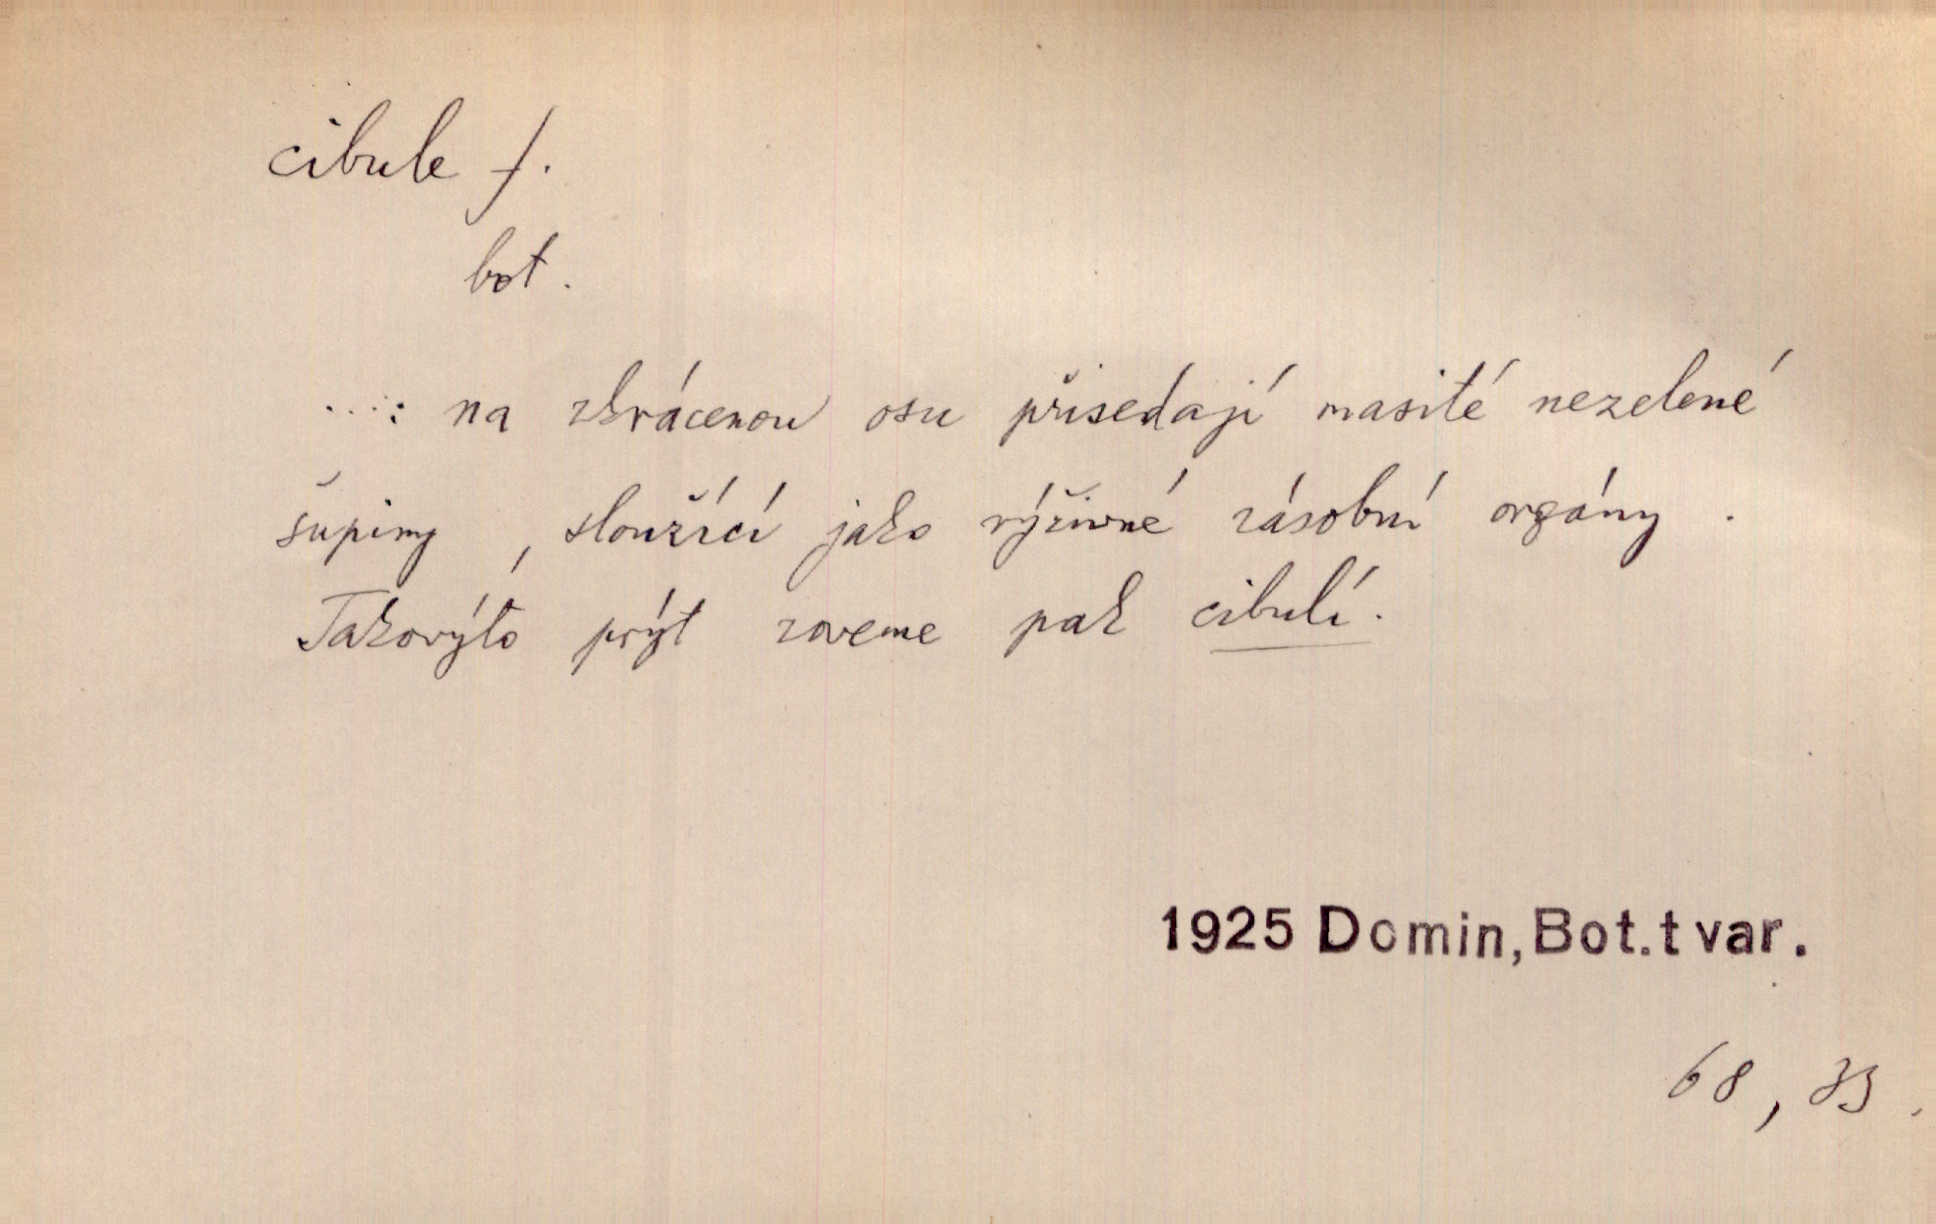 cibule f.
bot.
...: na zkrácenou osu přisedají masité nezelené
šupiny, sloužící jako výživné zásobní orgány.
Takovýto prýt zoveme pak cibulí.
1925 Domin, Bot. tvar.
68, 33.